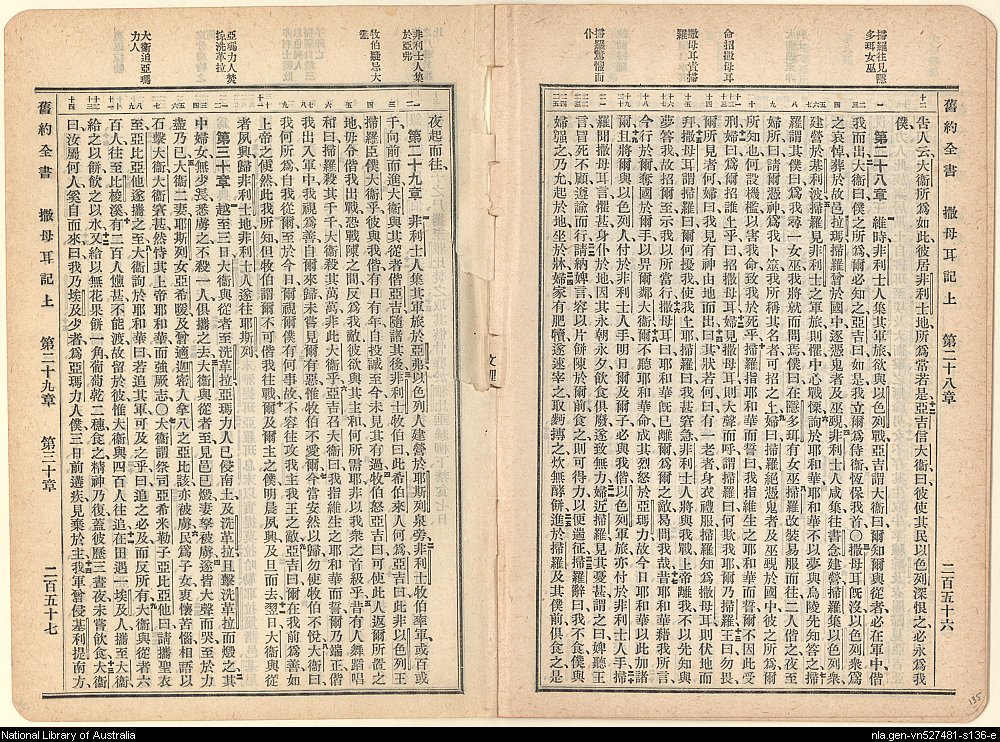 舊約全書 撒母耳記上 第二十八章 二百五十六
掃羅往見隱多珥女巫
命招撒母耳
撒母耳責掃羅
掃羅驚懼而仆
告人云大衞所爲如此彼居非利士地所爲常若是亞吉信大衞曰彼使其民以色列深恨之必永爲我
僕
第二十八章 維時非利士人集其軍旅欲與以色列戰亞吉謂大衞曰爾知爾與從者必在軍中偕
我而出大衞曰僕之所爲爾必知之亞吉曰如是我立爾爲侍衞恆保我首〇撒母耳旣沒以色列衆爲
之哀悼葬於故邑拉瑪掃羅曾於國中逐憑鬼者及巫覡非利士人咸集往書念建營掃羅集以色列衆
建營於基利波掃羅見非利士之軍旅則懼中心戰慄詢於耶和華耶和華不以夢與烏陵先知答之掃
羅謂其僕曰爲我尋一女巫我將就而問焉僕曰在隱多珥有女巫掃羅改裝易服而往二人偕之夜至
婦所曰請爾憑神爲我卜筮我所稱其名者可招之上婦曰掃羅絕憑鬼者及巫覡於國中彼之所爲爾
所知也何設機檻以害我命致我於死乎掃羅指耶和華而誓曰我指維生之耶和華而誓爾不因此受
刑婦曰爲爾招誰上乎曰招撒母耳婦見撒母耳則大聲而呼謂掃羅曰何欺我耶爾乃掃羅王曰勿畏
爾所見者何婦曰我見有神由地而出曰其狀若何曰有一老者身衣禮服掃羅知爲撒母耳則伏地而
拜撒母耳謂掃羅曰爾何擾我使我上耶掃羅曰我甚窘急非利士人將與我戰上帝離我不以先知與
夢答我故招爾至示我以所當行撒母耳曰耶和華離爾爲爾之敵曷問我哉昔耶和華藉我所言
今行於爾奪國於爾手以畀爾鄰大衞爾不聽耶和華命成其烈怒於亞瑪力故今日耶和華以此加諸
爾且將爾與以色列人付於非利士人手明日爾及爾子必與我偕以色列軍旅亦付於非利士人手掃
羅聞撒母耳言懼甚身仆於地因其永朝永夕飲食俱廢遂致無力婦近掃羅見其憂甚謂之曰婢聽王
言冒死不顧遵諭而行請納婢言容以片餅陳於爾前食之則可得力以便遄征掃羅辭曰我不食僕與
婦强之乃允起於地坐於牀婦家有肥犢遂速宰之取麪摶之炊無酵餅進於掃羅及其僕前俱食之是
135
舊約全書 撒母耳記上 第二十九章 第三十章 二百五十七
非利士人集於亞弗
牧伯疑忌大衞
亞瑪力人焚掠洗革拉
大衞追亞瑪力人
夜起而往
第二十九章 非利士人集其軍旅於亞弗以色列人建營於耶斯列泉旁非利士牧伯率軍或百或
千向前而進大衞與其從者偕亞吉隨諸其後非利士牧伯曰此希伯來人何爲亞吉曰此非以色列王
掃羅臣僕大衞乎彼與我偕有日有年自投誠至今未見其有過牧伯怒亞吉曰可使此人返爾所置之
地毋令偕我出戰恐戰陳之間反爲我敵彼欲與其主和何所需耶非以我衆之首級乎昔有人舞蹈唱
和曰掃羅殺其千千大衞殺其萬萬非此大衞乎亞吉召大衞曰我指維生之耶和華而誓爾乃端正偕
我出入軍中我視爲善自爾來歸未嘗見爾有惡惟牧伯不愛爾今當安然以歸勿使牧伯不悅大衞曰
我何所爲自我從爾至於今日爾視爾僕有何事故不容往攻我主我王之敵亞吉曰爾在我前爲善如
上帝之使然此我所知但牧伯謂爾不可偕我往戰爾及爾主之僕明晨夙興及旦而去翌日大衞與從
者夙興歸非利士地非利士人遂往耶斯列
第三十章 越至三日大衞與從者至洗革拉亞瑪力人已侵南土及洗革拉且擊洗革拉而燬之其
中婦女無少長悉虜之不殺一人俱攜之去大衞與從者至見邑已燬妻孥被虜遂皆大聲而哭至於力
盡乃已大衞二妻耶斯列女亞希暖及曾適迦密人拿八之亞比該亦被虜民爲子女衷懷苦惱相語以
石擊大衞大衞窘甚然恃其上帝耶和華而強厥志〇大衞謂祭司亞希米勒子亞比亞他曰請攜聖衣
至亞比亞他遂攜之至大衞詢於耶和華曰若追其軍可及之乎曰追之必及而反所有大衞與從者六
百人往至比梭溪有二百人憊甚不能渡故留於彼惟大衞與四百人往追在田遇一埃及人攜至大衞
給之以餅飲之以水又給以無花果餅一角葡萄乾二穗食之精神乃復蓋彼歷三晝夜未嘗飲食大衞
曰汝屬何人奚自而來曰我乃埃及少者爲亞瑪力人僕三日前遘疾見棄於主我軍曾侵基利提南方
文理
National Library of Australia
nla.gen-vn527481-s136-e